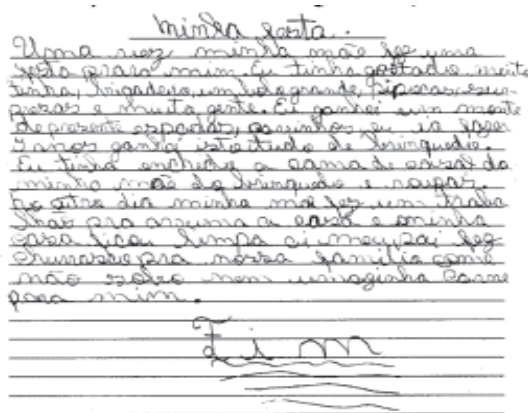 minha festa.
Uma vez minha mãe fez uma
festa para mim. Eu tinha gostado muito
tinha, brigadeiro, um bolo grande, pipocas, sur-
presas e muita gente. Eu ganhei um monte
de presente espadas, carrinhos, eu ia fazer
5 anos ganhei isto tudo de brinquedio.
Eu tinha enchido a cama de casal da
minha mãe de brinquedo e roupas.
no otro dia minha mãe fez um traba
lhão pra arruma a casa e a minha
casa ficou limpa ai meu pai fez
churrasco pra nossa família come
não sobro nem umaginha carne
para mim.
Fim